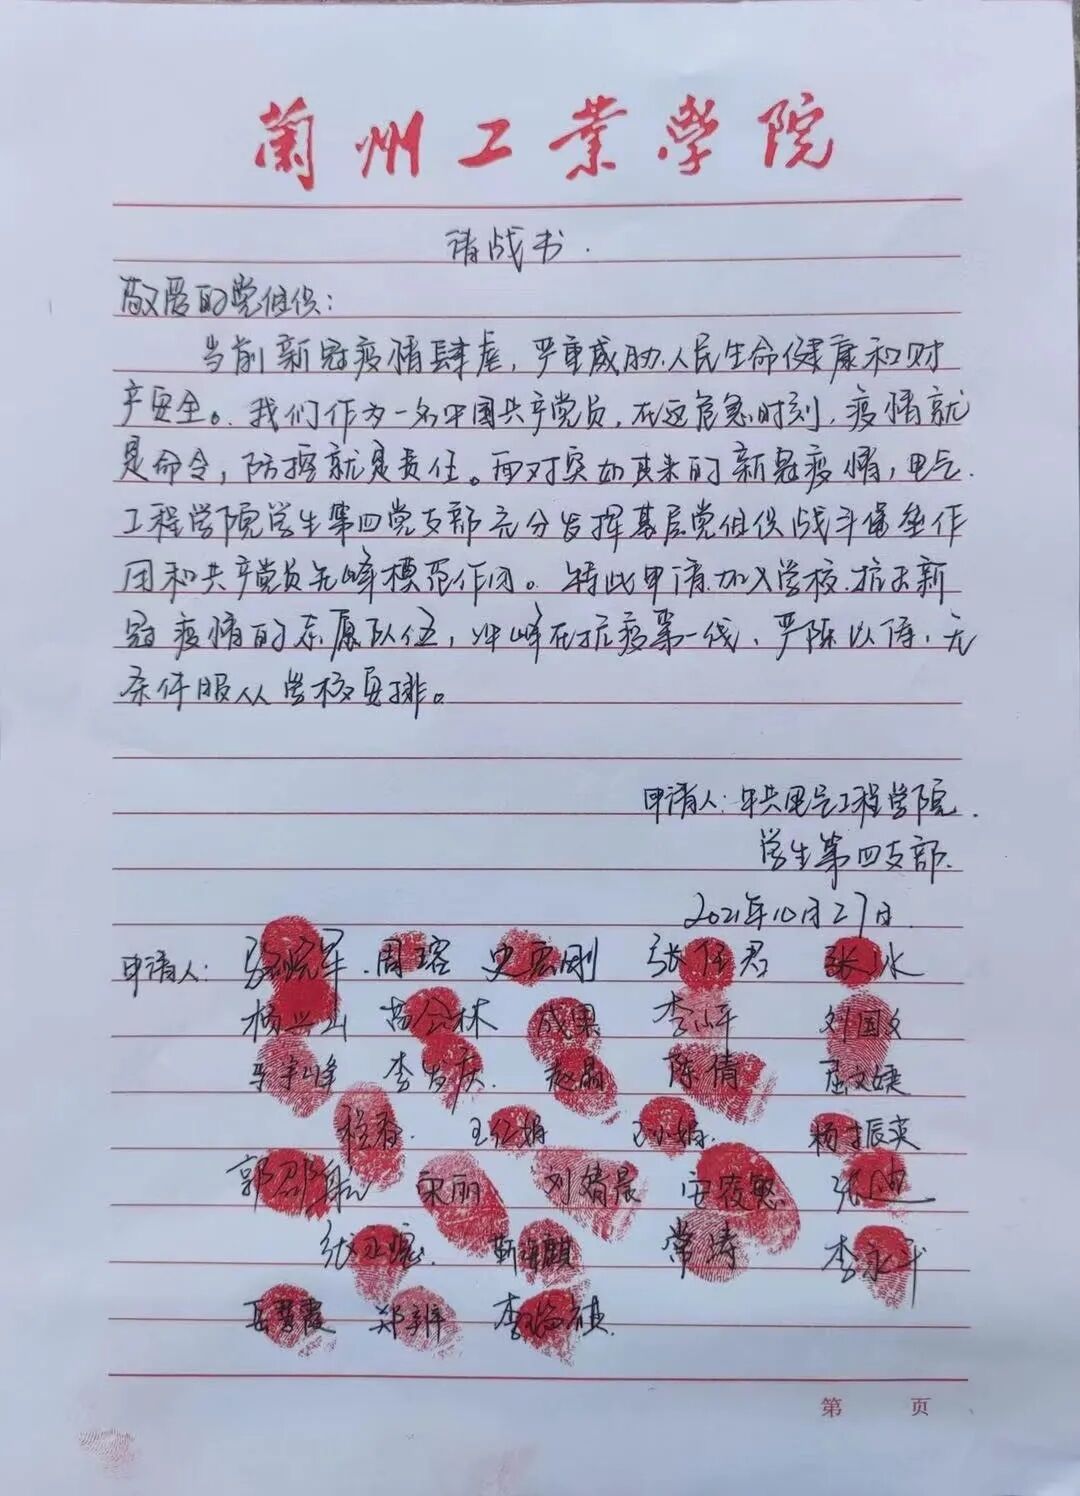 兰州工业学院
请战书.
敬爱的党组织:
当前新冠疫情肆虐,严重威胁人民生命健康和财
产安全。我们作为一名中国共产党员,在这危急时刻,疫情就
是命令,防控就是责任。面对突如其来的新冠疫情,电气
工程学院学生第四党支部充分发挥基层党组织战斗堡垒作
用和共产党员先峰模范作用。特此申请加入学校抗击新
冠疫情的志愿队伍,冲峰在抗疫第一线,严阵以待,无
条件服从学校安排。
申请人:中共电气工程学院
学生第四支部.
2021年10月27日
申请人: 周瑢 史宏刚 张任君 张冰
杨兴山 苟会林 成果 李小平 刘国文
马争峰 李发庆 赵晶 陈倩 屈文婕
程香 王红娟 王小娟 杨振英
郭邵航 宋丽 刘婧晨 张迪
常涛 李永斗
岳慧霞 郑辨
第 页